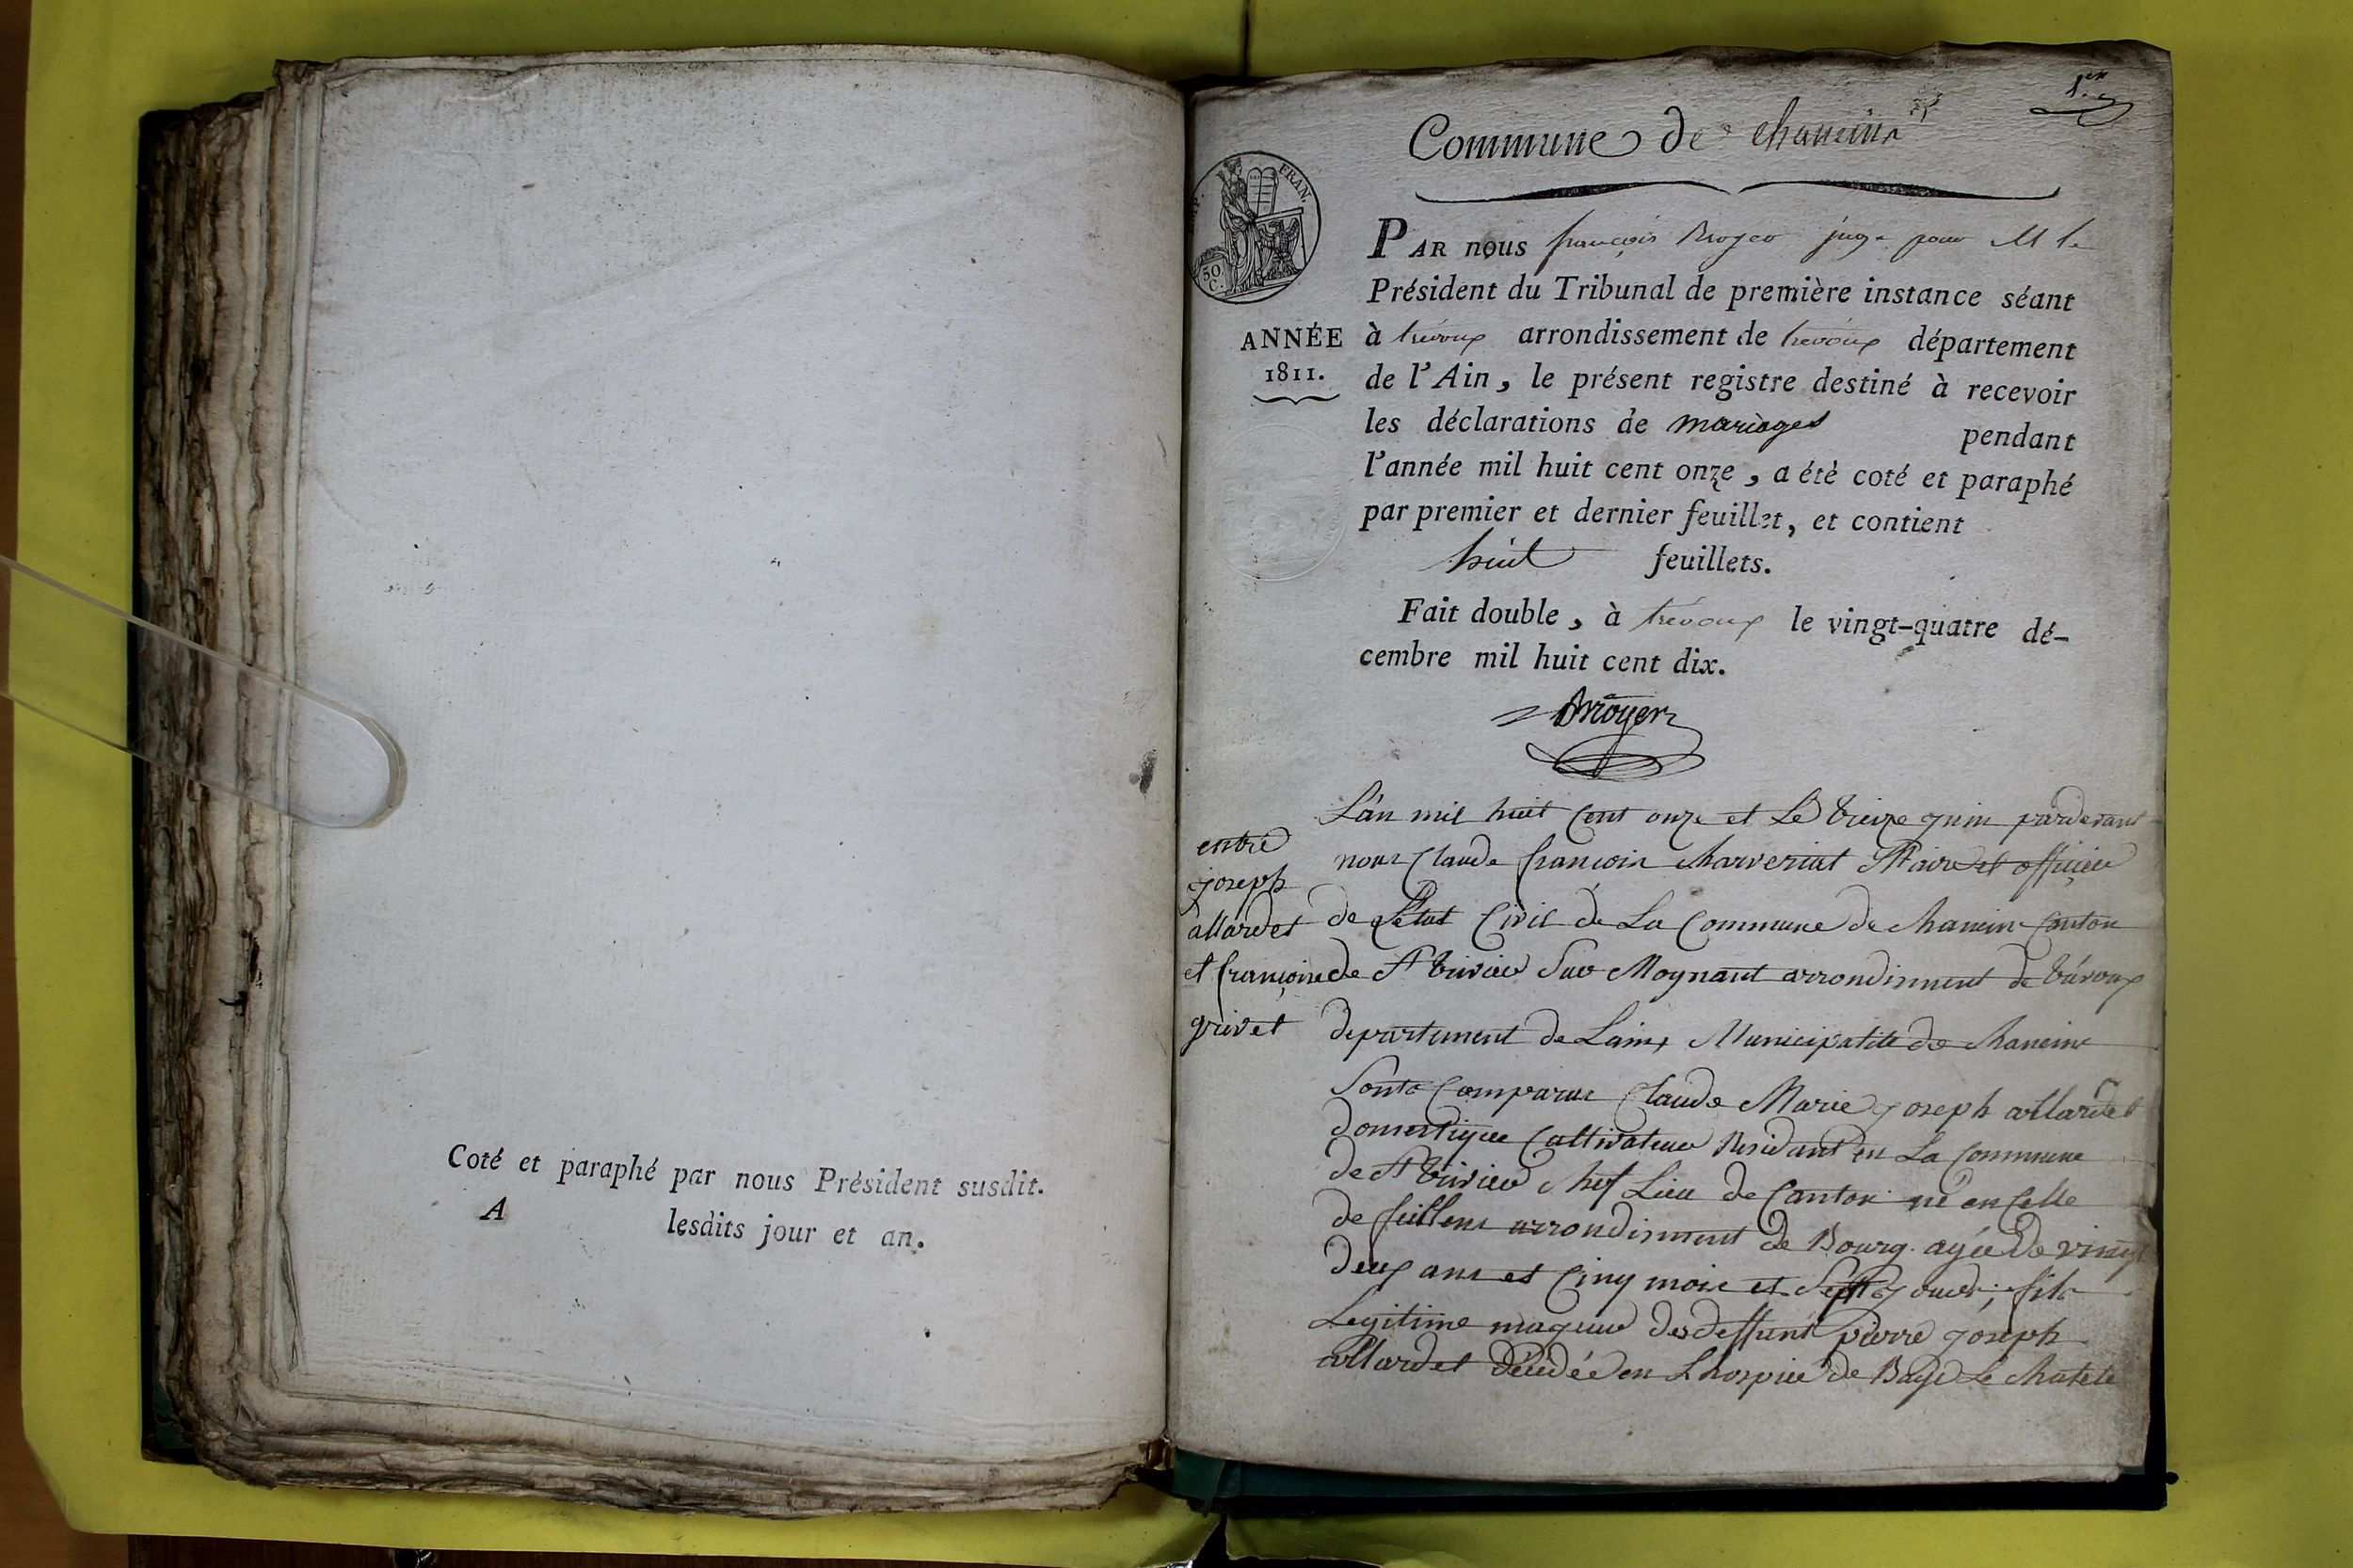 Coté et paraphé par nous Président susdit.
A lesdits jour et an.
1.er
Commune de chaneins
FRAN.
50
C.
ANNÉE
1811.
PAR nous françois Broyer juge pour M le
Président du Tribunal de première instance séant
à trévoux arrondissement de trévoux département
de l'Ain, le présent registre destiné à recevoir
les déclarations de mariages pendant
l'année mil huit cent onze, a été coté et paraphé
par premier et dernier feuillet, et contient
huit feuillets.
Fait double, à trévoux le vingt-quatre dé-
cembre mil huit cent dix.
Broyer
entre
joseph
allardet
et françoise
grivet
L'an mil huit Cent onze et Le treize juin pardevant
nous Claude françois Charveriat Maire et officier
de L'état Civil de La Commune de Chanein Canton
de St trivier Sur Moynant arrondisment de trévoux
departement de Lain, Municipalité de Chaneine
Sonts Comparus Claude Marie joseph allardet
domestique Cultivateur Residant en La Commune
de St trivier Chef Lieu de Canton né en Celle
de feillens arrondisment de Bourg agée de vingt
deux ans et Cinq mois et Sept jours, fils
Legitime mageur des deffunt pierre joseph
allardet décédée en Lhospice de Bagé Le Chatele